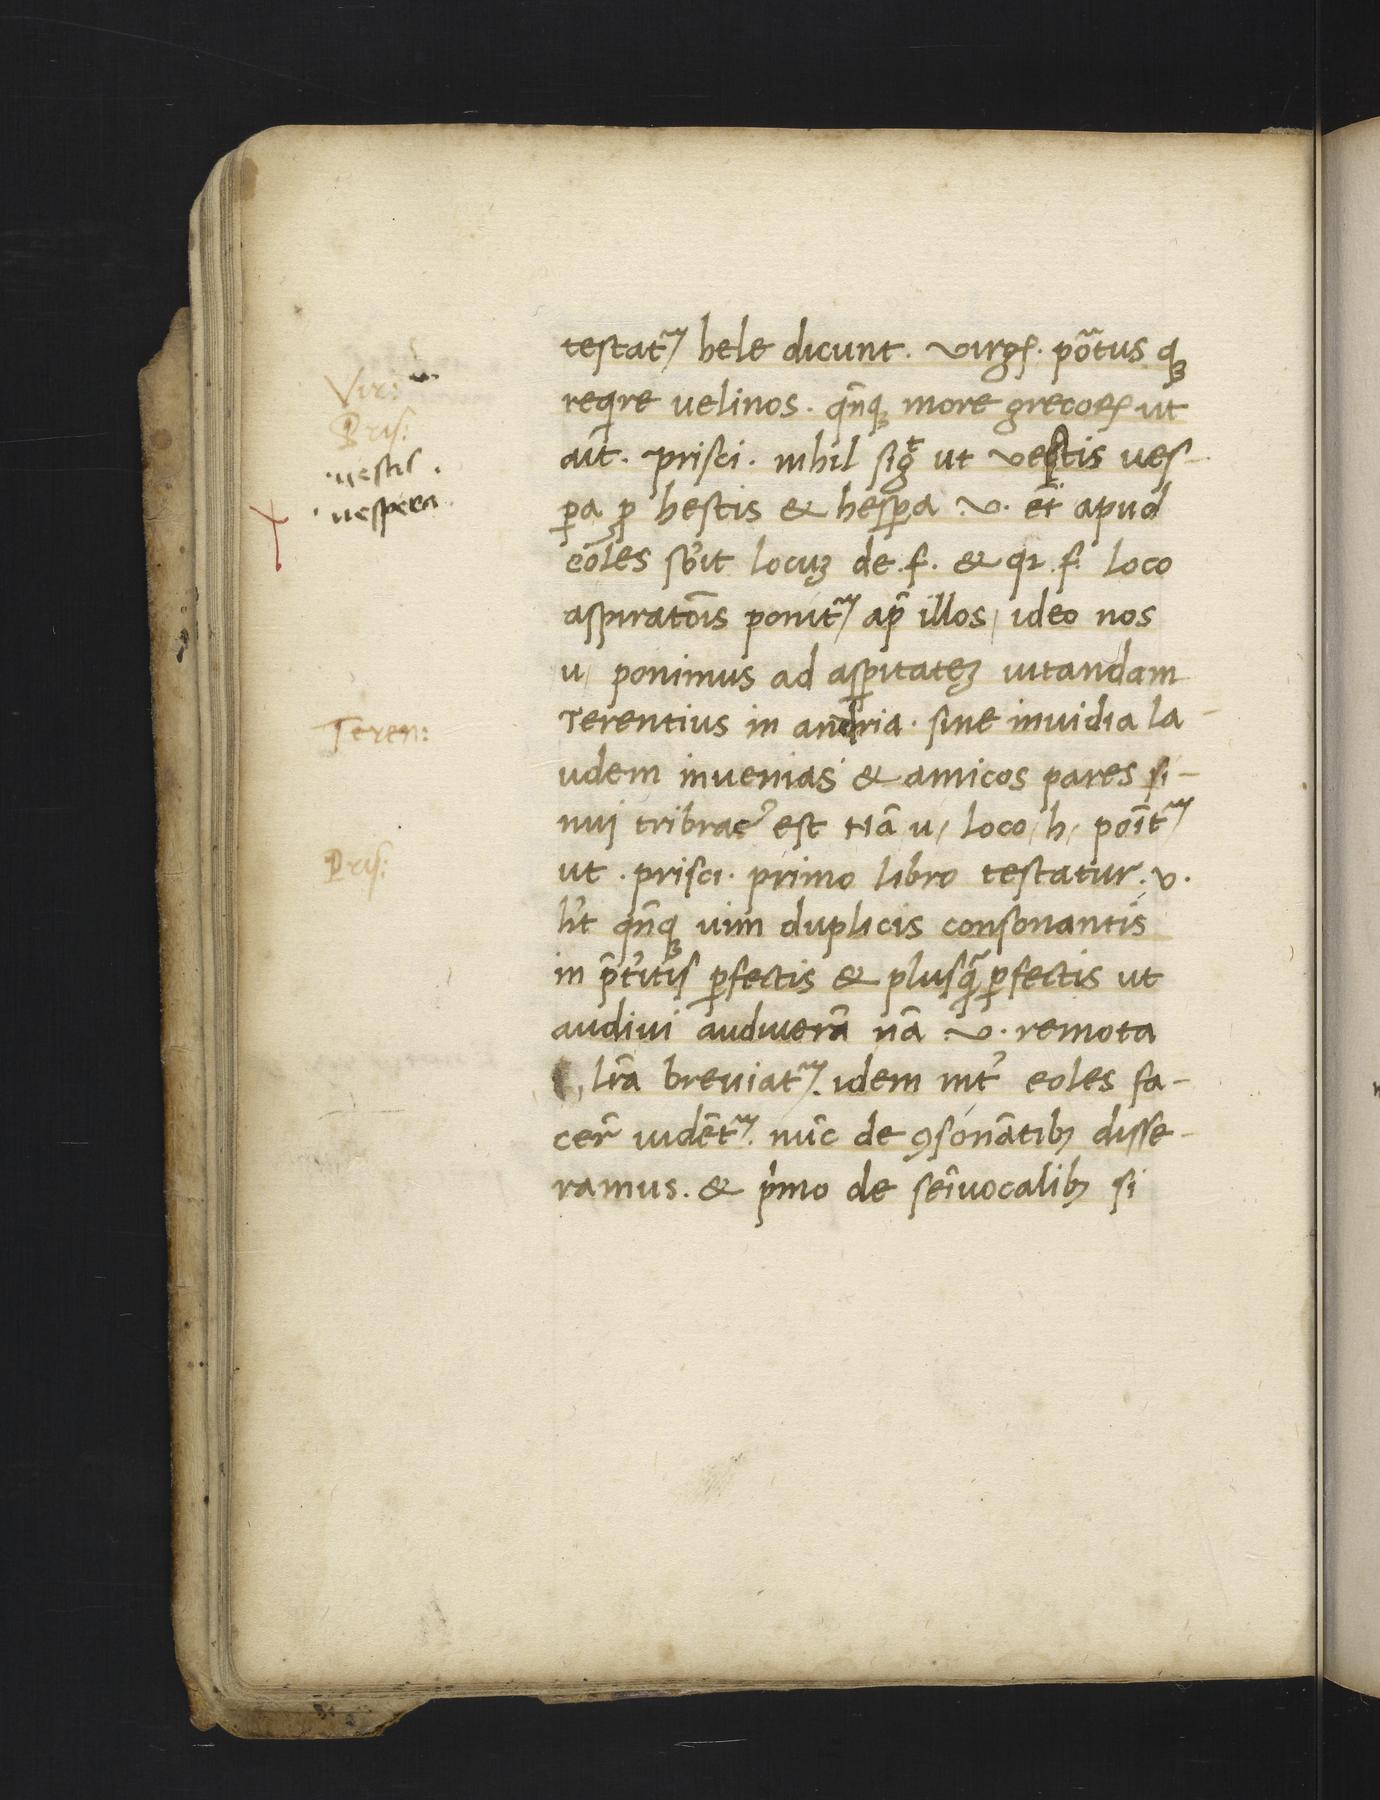 Vir:
Pris:
·uestis·
·uespera·
Teren:
Pris:
testat᷑ hele dicunt. virgꝭ. põtus qꝫ
reqͥre uelinos. qñqꝫ more grecoꝝ ut
ait. prisci. nihil sigᵗ ut vestis ues-
ꝑa ꝓ hestis & hesꝑa .v. et̃ apud
eoles sb̉it locuꝫ de .f. & qꝛ .f. loco
aspiratõis ponit᷑ apͥ illos, ideo nos
u, ponimus ad asꝑitateꝫ uitandam
Terentius in andria. sine inuidia la-
udem inuenias & amicos pares si-
nuj tribrac̉ est nã u, loco, h, poĩt᷑
ut .prisci. primo libro testatur. v.
h̉t qñqꝫ uim duplicis consonantis
in p̃t̉itis ꝑfectis & plusq̃ꝑfectis ut
audiui audiuerã nã .v. remota
lr̃a breuiat᷑. idem int̉ eoles fa-
cer̃ uidẽt᷑. nũc de ꝯsonãtibꝫ disse-
ramus. & pͥmo de sẽiuocalibꝫ si